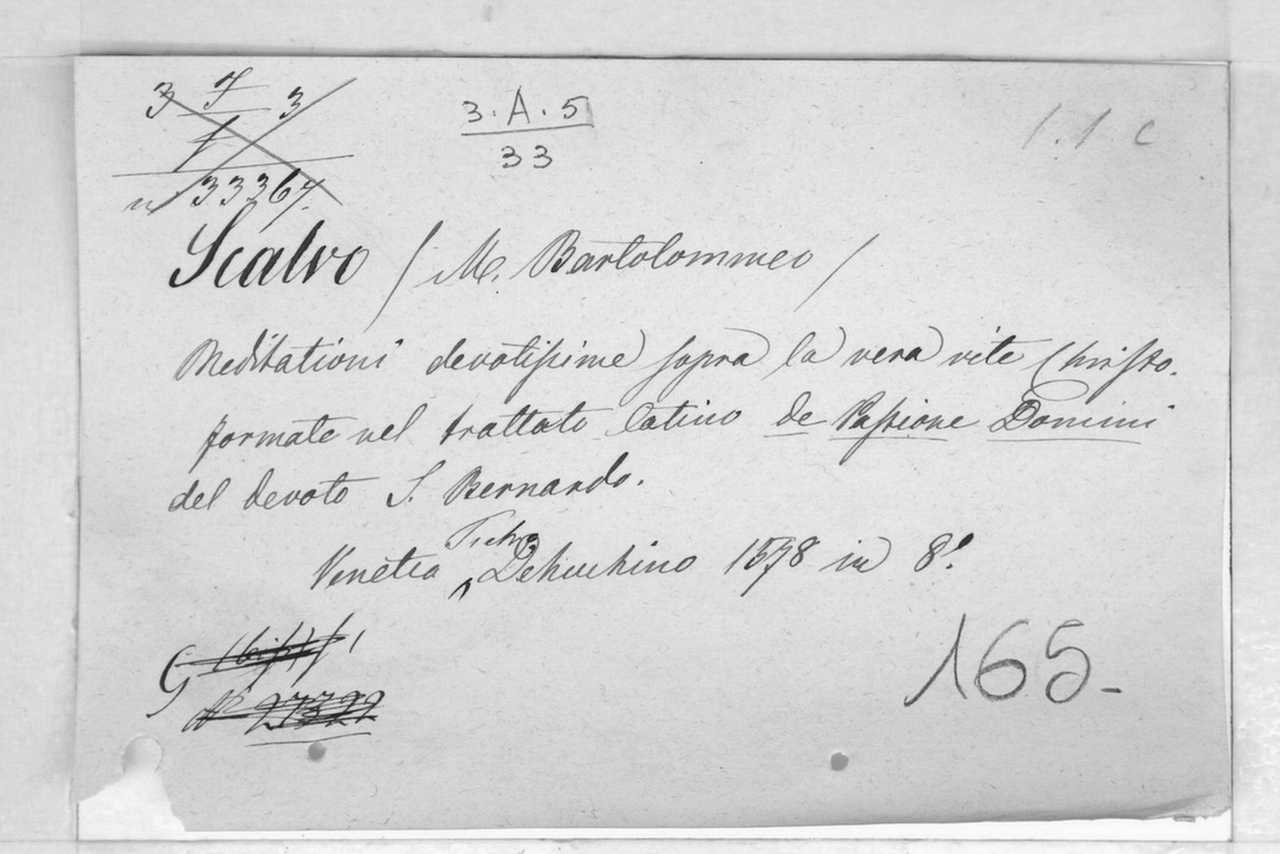 3 7 3
1
n 33367.
3.A.5
33
1.1 c
Scalvo (M. Bartolommeo)
Meditationi devotissime sopra la vera vite Christo.
formate nel trattato latino de Passione Domini
del devoto S. Bernardo.
Venetia Dehuchino 1578 in 8º.
G
Nº 27322
165-